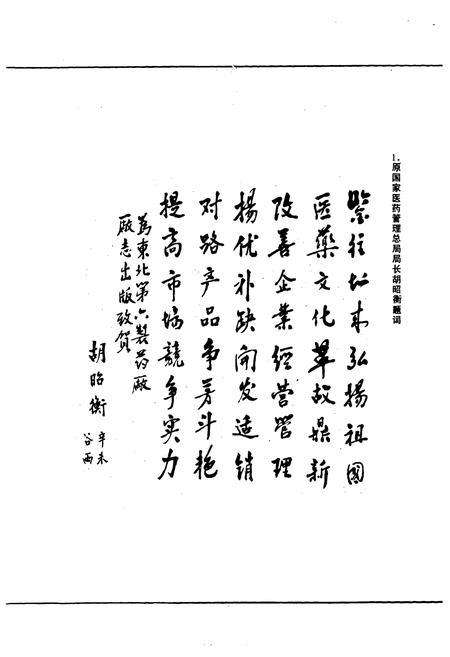 1.原国家医药管理总局局长胡昭衡题词
鑒往知来弘揚祖國
医藥文化革故鼎新
改善企業经营管理
揚优补缺開发适销
对路产品争芳斗艳
提高市场競争实力
為東北第六製药廠
廠志出版致贺
胡昭衡
辛未
谷雨